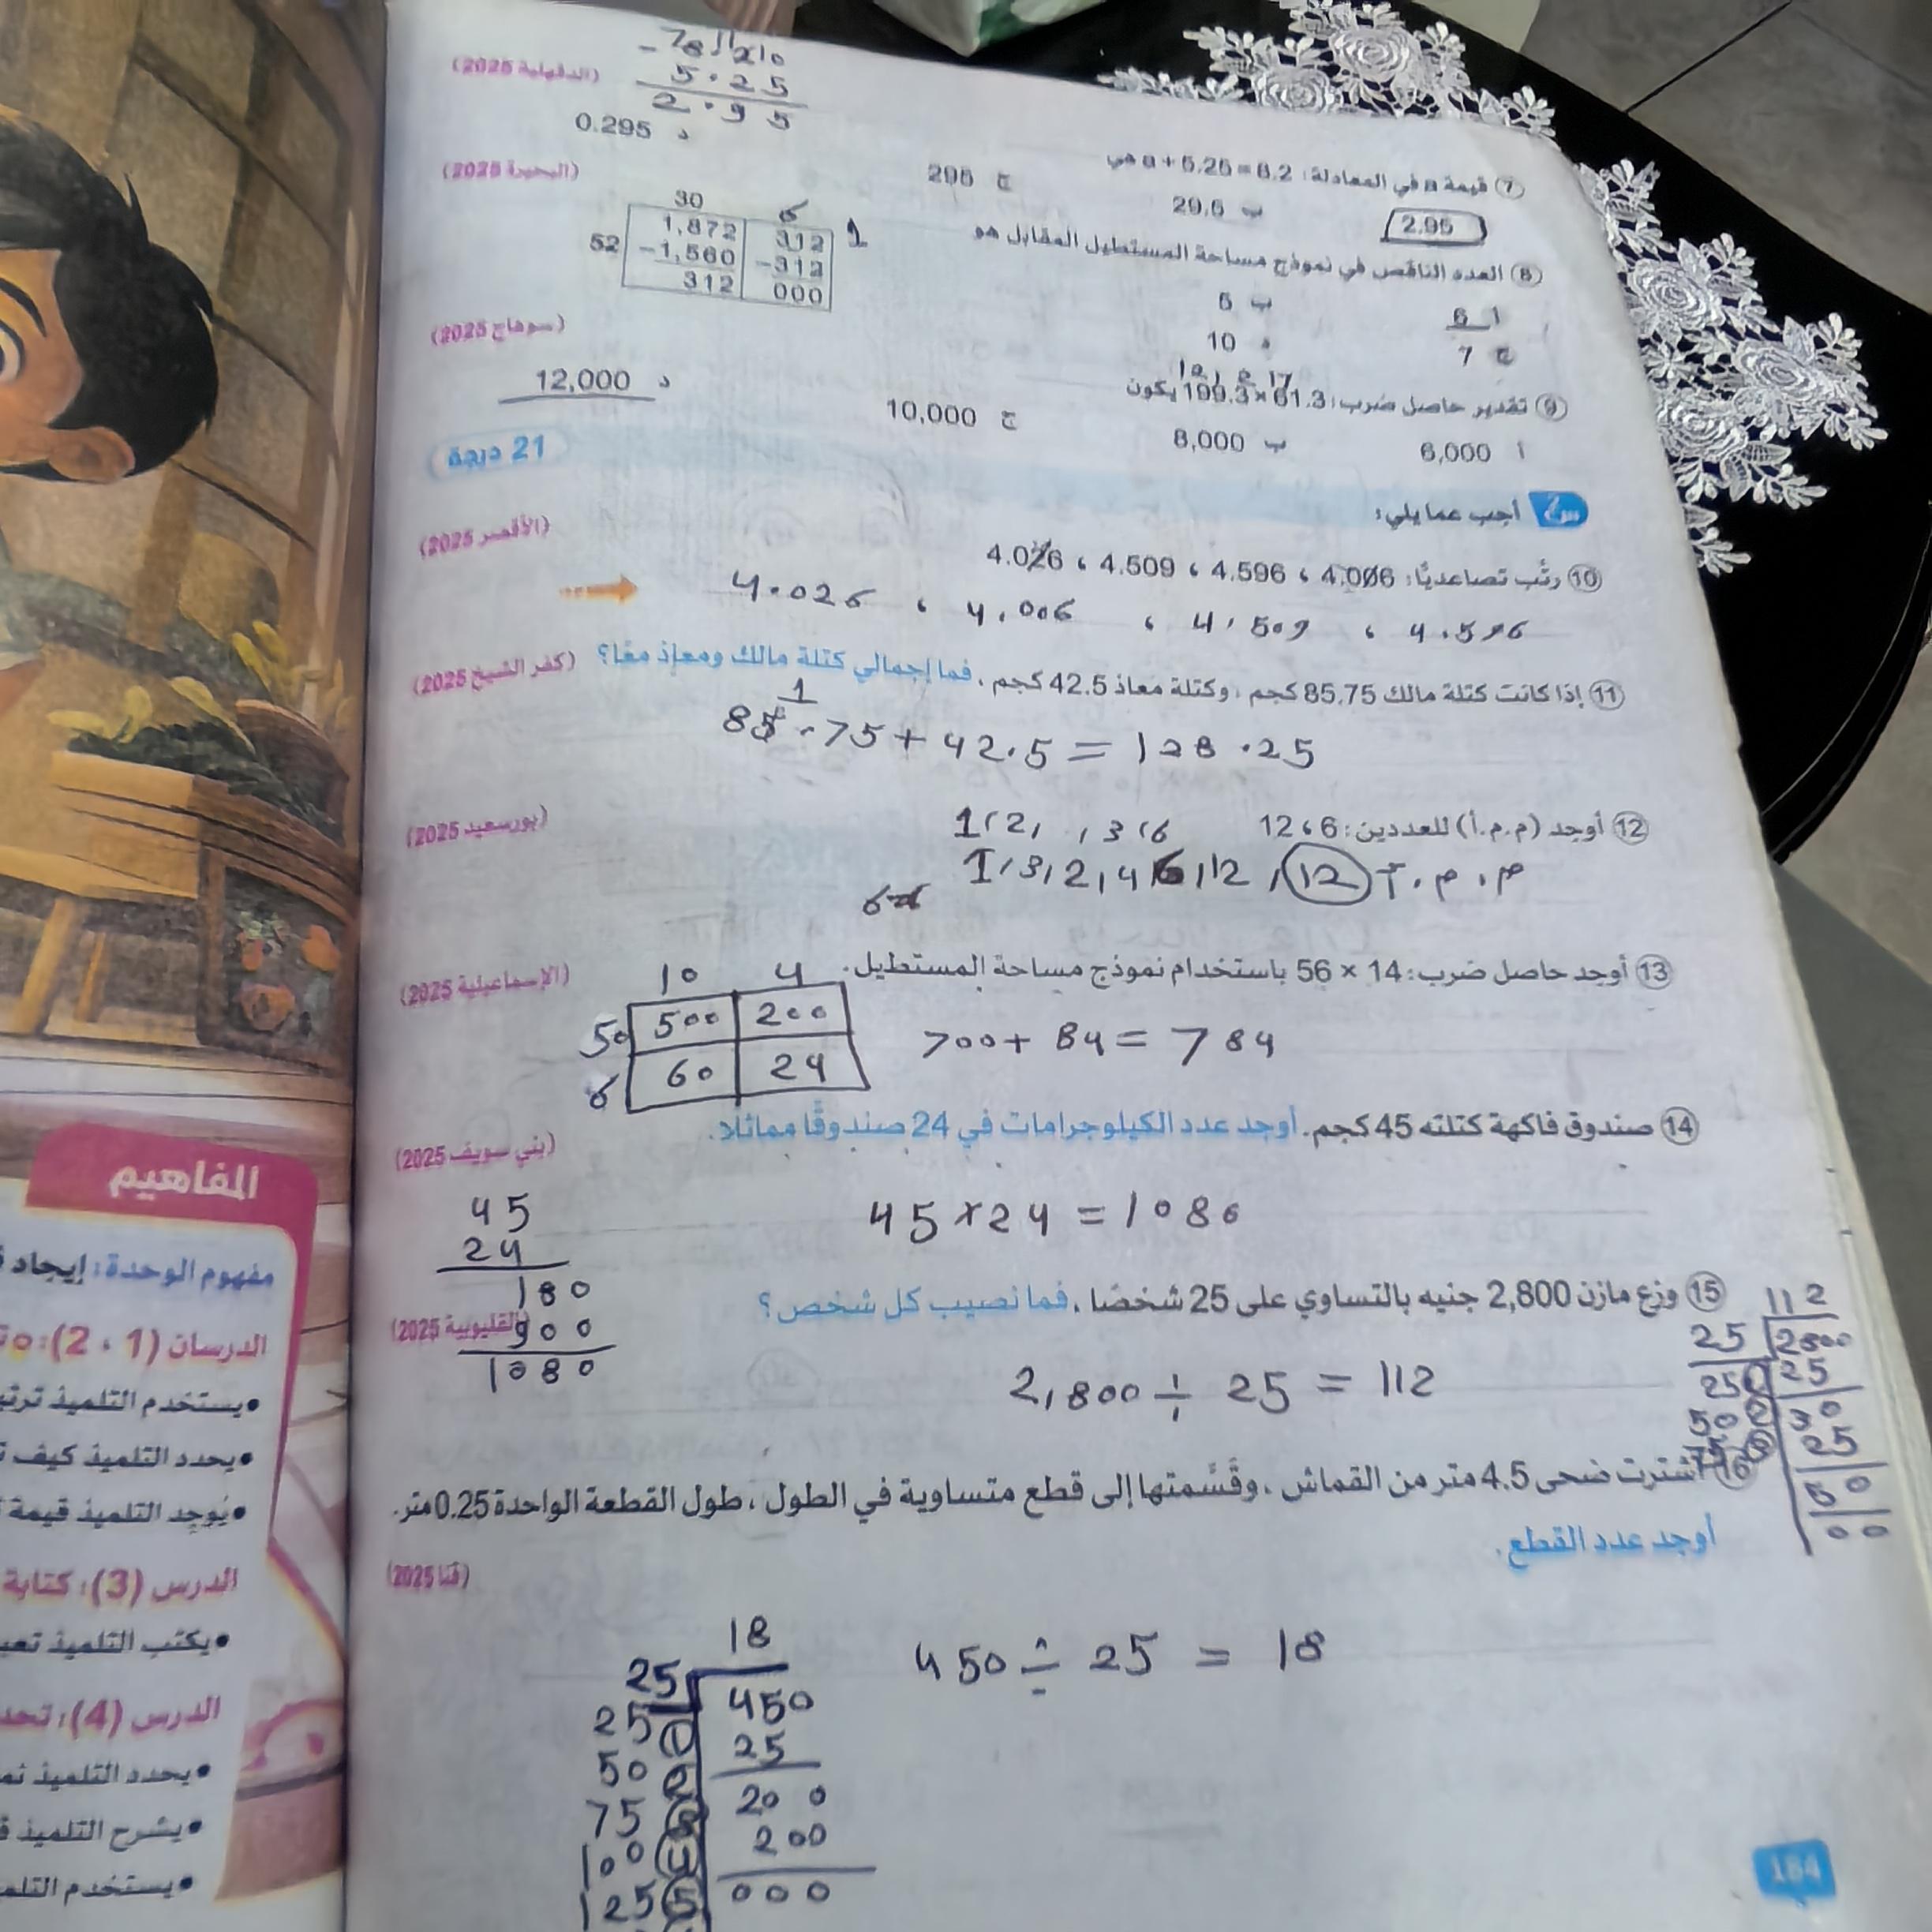 - 7 8 11 2 10
5.25
2.95
(الدقهلية 2025)
7 قيمة a في المعادلة: a + 5.25 = 8.2 هي
2.95
ب 29.5
ج 295
د 0.295
(البحيرة 2025)
8 العدد الناقص في نموذج مساحة المستطيل المقابل هو
30 6
52 1,872 312 1
−1,560 −312
312 000
أ 6
ب 5
ج 7
د 10
(سوهاج 2025)
9 تقدير حاصل ضرب: 199.3 × 61.3 يكون
أ 6,000
ب 8,000
ج 10,000
د 12,000
21 درجة
أجب عما يلي:
(الأقصر 2025)
10 رتِّب تصاعديًّا: 4.006 ، 4.596 ، 4.509 ، 4.026
4.026 ، 4.006 ، 4.509 ، 4.596
11 إذا كانت كتلة مالك 85.75 كجم ، وكتلة معاذ 42.5 كجم ، فما إجمالي كتلة مالك ومعاذ معًا؟ (كفر الشيخ 2025)
1
85.75 + 42.5 = 128.25
12 أوجد (م.م.أ) للعددين: 6 ، 12 (بورسعيد 2025)
1, 2, , 3, 6
1, 3, 2, 4, 6, 12, 12 م.م.أ
13 أوجد حاصل ضرب: 14 × 56 باستخدام نموذج مساحة المستطيل. (الإسماعيلية 2025)
10 4
50 500 200
6 60 24
700 + 84 = 784
14 صندوق فاكهة كتلته 45 كجم. أوجد عدد الكيلوجرامات في 24 صندوقًا مماثلًا.
(بني سويف 2025)
45 × 24 = 1080
45
24
180
900
1080
15 وزع مازن 2,800 جنيه بالتساوي على 25 شخصًا ، فما نصيب كل شخص؟ (القليوبية 2025)
2,800 ÷ 25 = 112
112
25 2800
25 1 25
50 2 30
75 3 25
50
00
16 اشترت ضحى 4.5 متر من القماش ، وقَسَّمتها إلى قطع متساوية في الطول ، طول القطعة الواحدة 0.25 متر.
أوجد عدد القطع.
(قنا 2025)
450 ÷ 25 = 18
18
25 450
25 1 25
50 2 200
75 3 200
100 4 000
125 5
184
المفاهيم
مفهوم الوحدة: إيجاد
الدرسان (1 ، 2):
• يستخدم التلميذ
• يحدد التلميذ كيف
• يُوجِد التلميذ قيمة
الدرس (3): كتابة
• يكتب التلميذ
الدرس (4):
• يحدد التلميذ
• يشرح التلميذ
• يستخدم